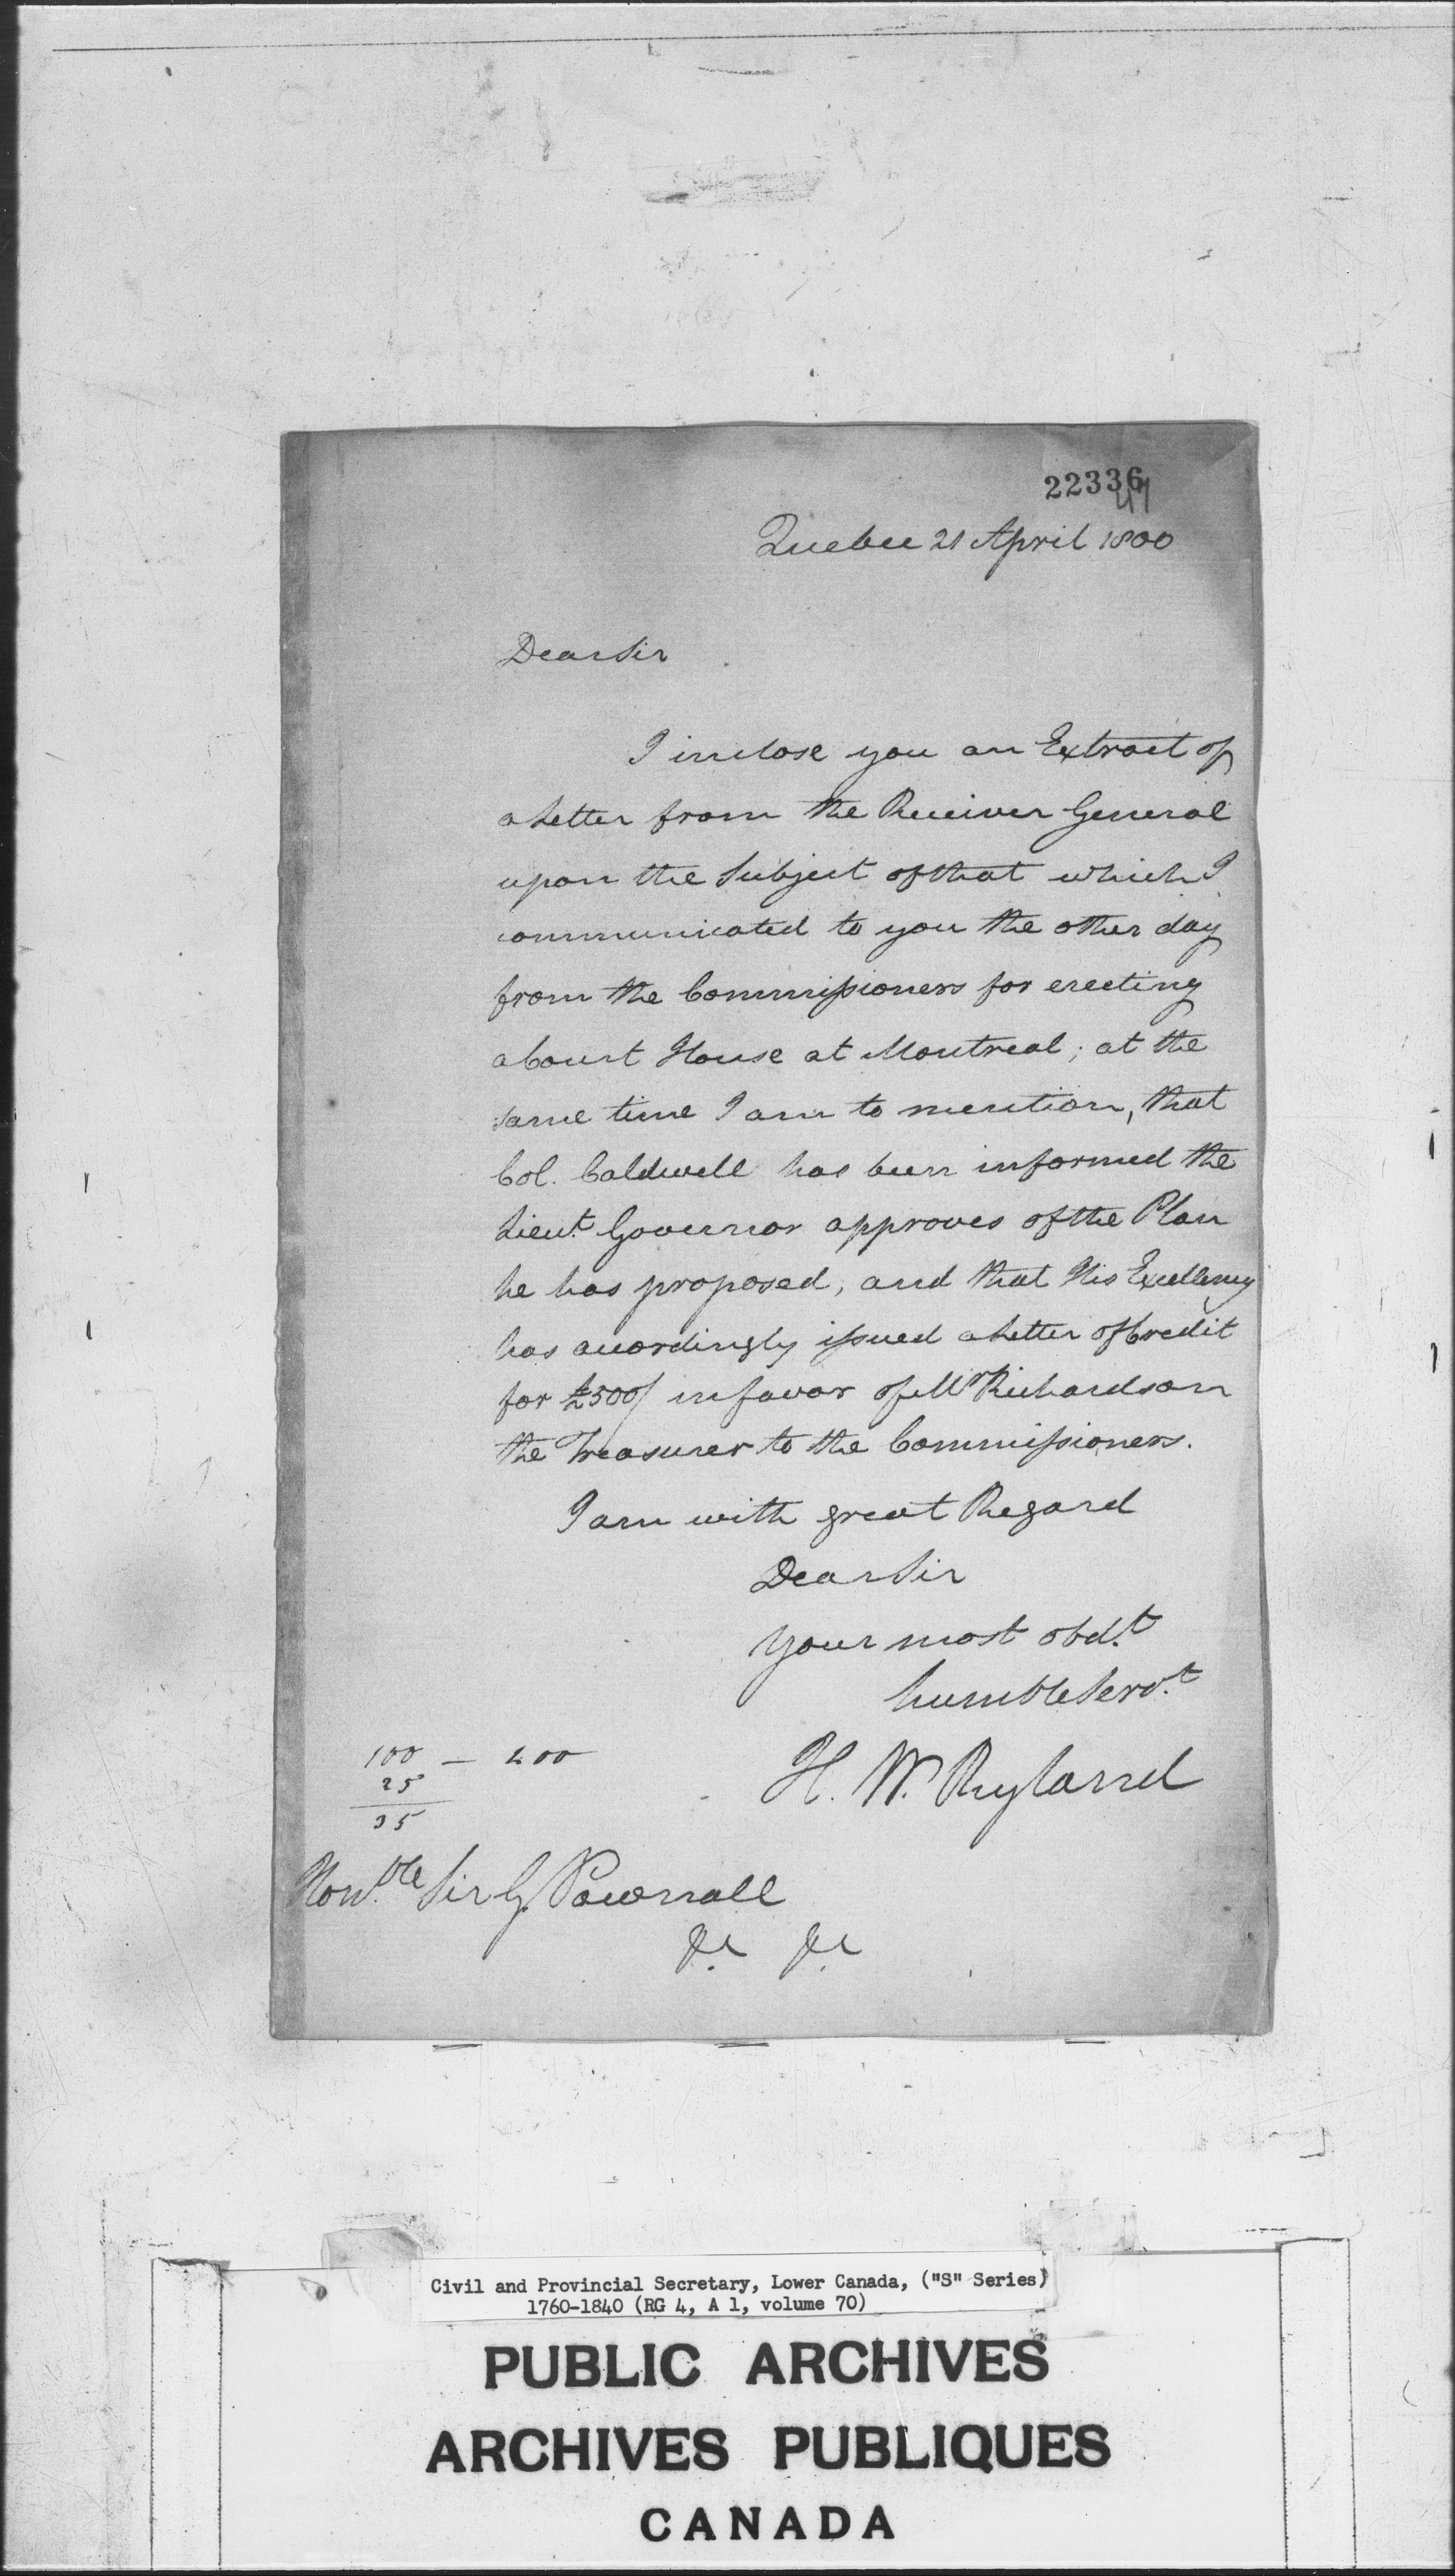 22336
Quebec 21 April 1800
Dear Sir
I inclose you an Extract of
a Letter from the Receiver General
upon the Subject of that which I
communicated to you the other day
from the Commissioners for erecting
a Court House at Montreal; at the
same time I am to mention, that
Col. Caldwell has been informed the
Lieut. Governor approves of the Plan
he has proposed, and that His Excellency
has accordingly issued a Letter of Credit
for £500/ in favor of Mr Richardson
the Treasurer to the Commissioners.
I am with great Regard
Dear Sir
Your most obdt.
humble Servt.
H. W. Ryland
100 — 200
25
35
Honble. Sir G. Pownall
&c. &c.
Civil and Provincial Secretary, Lower Canada, ("S" Series)
1760-1840 (RG 4, A 1, volume 70)
PUBLIC ARCHIVES
ARCHIVES PUBLIQUES
CANADA